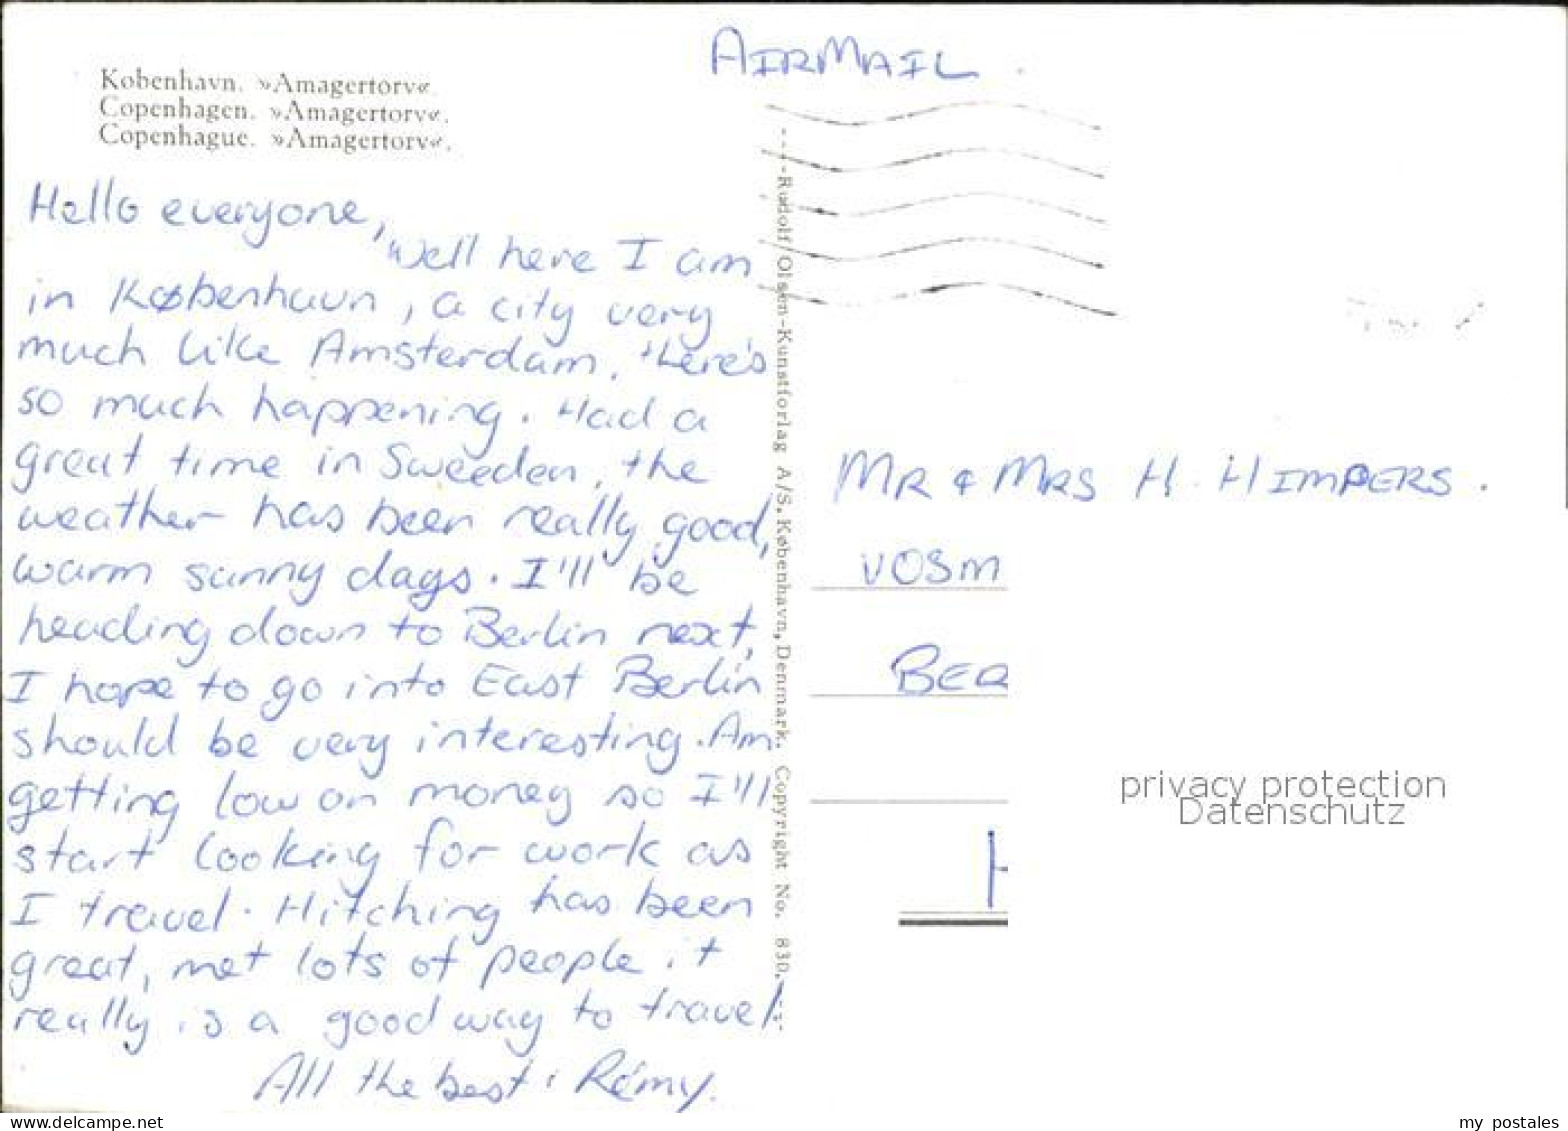 AIRMAIL
København. »Amagertorv«.
Copenhagen. »Amagertorv«.
Copenhague. »Amagertorv«.
Hello everyone,
Well here I am
in København, a city very
much like Amsterdam. Here's
so much happening. Had a
great time in Sweeden, the
weather has been really good,
warm sunny days. I'll be
heading down to Berlin next,
I hope to go into East Berlin
should be very interesting. Am
getting low on money so I'll
start looking for work as
I travel. Hitching has been
great, met lots of people it
really is a good way to travel.
All the best: Rémy.
Rudolf Olsen-Kunstforlag A/S. København, Denmark. Copyright No. 830.
MR & MRS H. HIMPERS.
VOSM
BER
H
privacy protection
Datenschutz
www.delcampe.net
my_postales